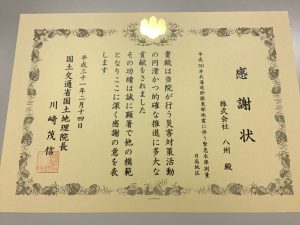 感謝状
株式会社 八州 殿
平成30年北海道胆振東部地震に伴う緊急水準測量
貴殿は当院が行う災害対策活動
の円滑かつ的確な推進に多大な
貢献をされました
その功績は誠に顕著で他の模範
となりここに深く感謝の意を表
します
平成三十一年二月十四日
国土交通省国土地理院長
川﨑茂信